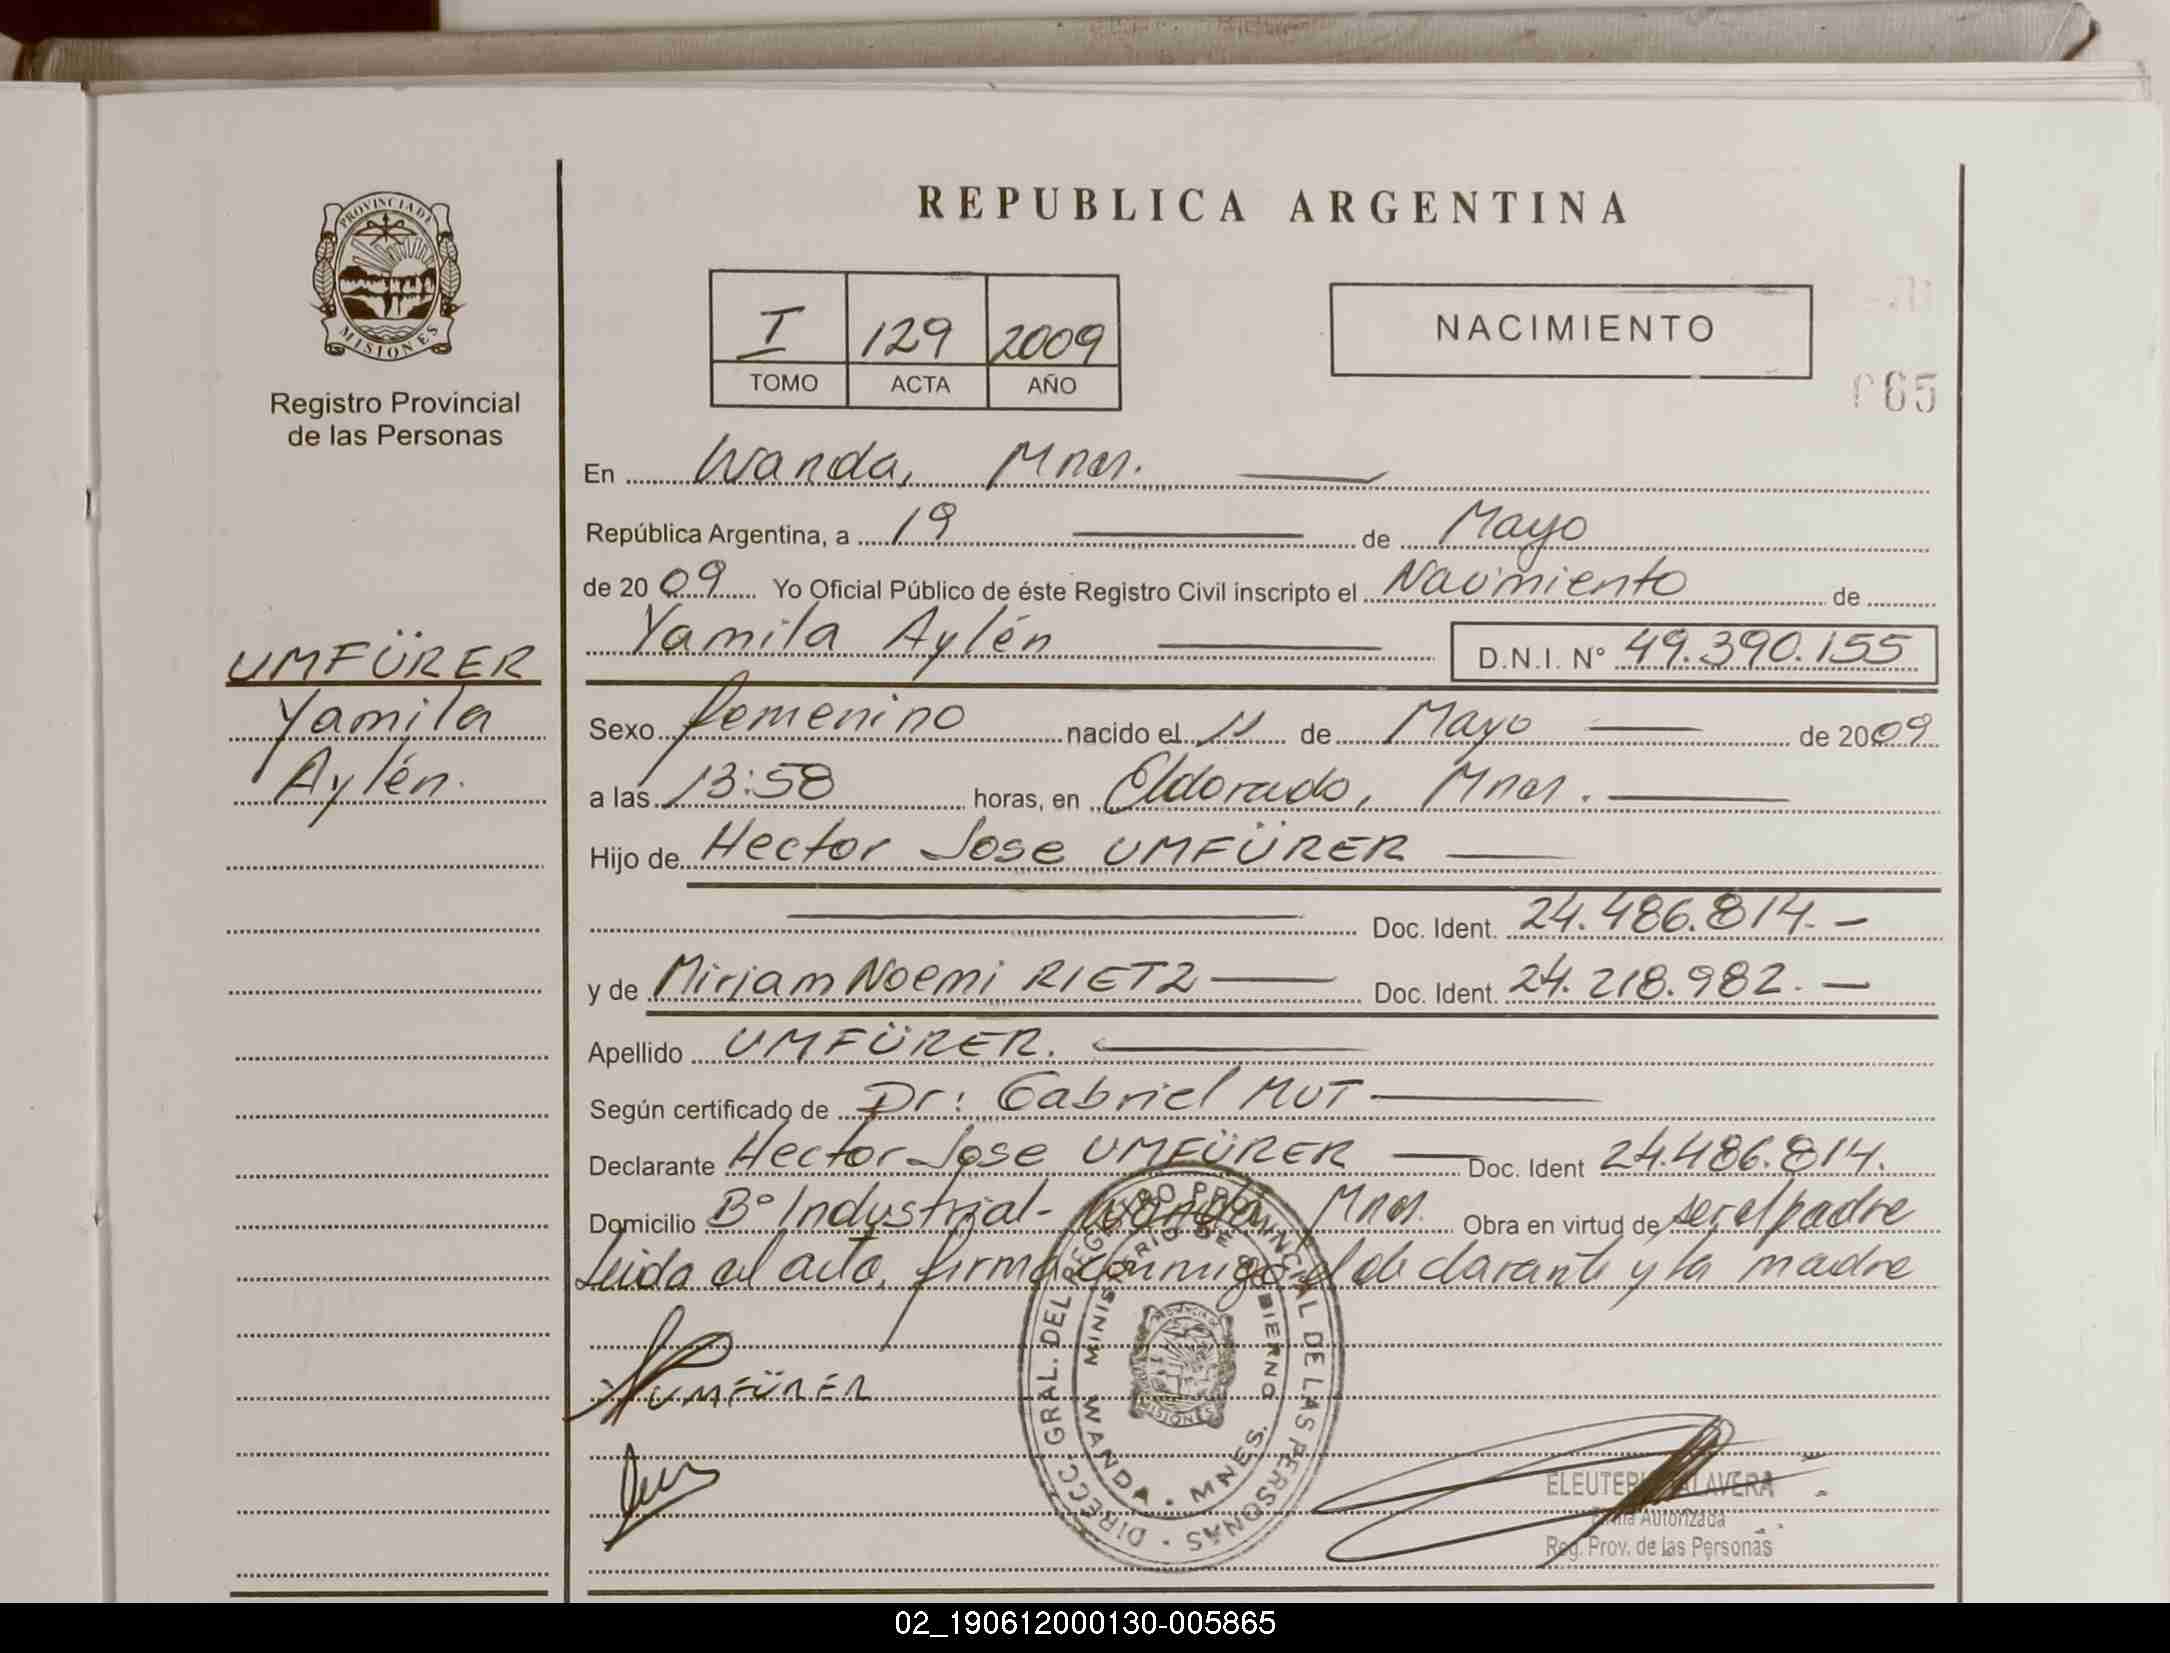 REPUBLICA ARGENTINA
PROVINCIA DE
MISIONES
Registro Provincial
de las Personas
I 129 2009
TOMO ACTA AÑO
NACIMIENTO
065
En Wanda, Mnes.
República Argentina, a 19 de Mayo
de 2009 Yo Oficial Público de éste Registro Civil inscripto el Nacimiento de
Yamila Aylén D.N.I. N° 49.390.155
UMFÜRER
Yamila
Aylén.
Sexo femenino nacido el 11 de Mayo de 2009
a las 13:58 horas, en Eldorado, Mnes.
Hijo de Hector Jose UMFÜRER
Doc. Ident. 24.486.814.-
y de Miriam Noemi RIETZ Doc. Ident. 24.218.982.-
Apellido UMFÜRER.
Según certificado de Dr: Gabriel MUT
Declarante Hector Jose UMFÜRER Doc. Ident 24.486.814.
Domicilio B° Industrial- Wanda, Mnes. Obra en virtud de ser el padre
Leida el acta, firma conmigo el declarante y la madre
UMFÜRER
DIRECC. GRAL. DEL REGISTRO PROVINCIAL DE LAS PERSONAS
MINISTERIO DE GOBIERNO
WANDA - MNES.
MISIONES
ELEUTERIO TALAVERA
Firma Autorizada
Reg. Prov. de las Personas
02_190612000130-005865